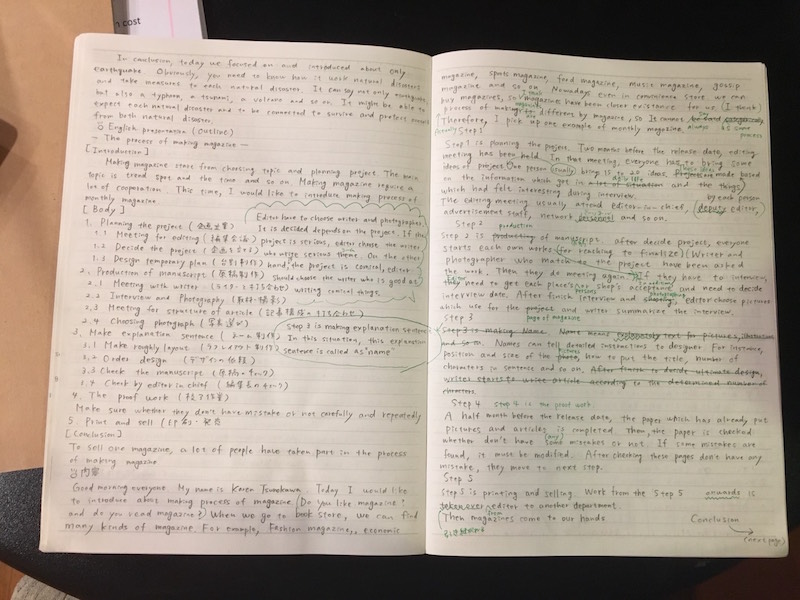 n cost
In conclusion, today we focused on and introduced about only
earthquake. Obviously, you need to know how it work natural disasters
and take measures to each natural disaster. It can say not only earthquake,
but also a typhoon, a tsunami, a volcano and so on. It might be able to
expect each natural disaster and to be connected to survive and protect
from both natural disaster.
English presentation (Outline)
— The process of making magazine —
[Introduction]
Making magazine start from choosing topic and planning project. The main
topic is trend spot and the time and so on. Making magazine require a
lot of cooperation. This time, I would like to introduce making process of
monthly magazine.
[Body]
Editor have to choose writer and photographer.
It is decided depends on the project. If the
project is serious, editor chose the writer
who write serious theme. On the other
hand, the project is comical, editor
should choose the writer who is good at
writing comical things.
1. Planning the project (企画立案)
1.1 Meeting for editing (編集会議)
1.2 Decide the project
1.3 Design temporary plan
2. Production of manuscript (原稿制作)
2.1 Meeting with writer
2.2 Interview and Photography (取材・撮影)
2.3 Meeting for structure of article
2.4 Choosing photograph (写真選び)
Step 3 is making explanation sentence
In this situation, this explanation
sentence is called as name
3. Make explanation sentence
3.1 Make roughly layout
3.2 Order design (デザインの依頼)
3.3 Check the manuscript (原稿チェック)
3.4 Check by editor in chief (編集長チェック)
4. The proof work
Make sure whether they don't have mistake or not carefully and repeatedly
5 Print and sell (印刷・発売)
[Conclusion]
To sell one magazine, a lot of people have taken part in the process
of making magazine
内容
Good morning everyone. My name is Karen. Today I would like
to introduce about making process of magazine. (Do you like magazine?
and do you read magazine?) When we go to book store, we can find
many kinds of magazine. For example, Fashion magazine, economic
magazine, sports magazine, food magazine, music magazine, gossip
magazine and so on. Nowadays, even in convenience store we can
buy magazines, so I think magazines have been closer existence for us. (I think)
process of making magazines different by magazine, so it cannot say always as same process
Therefore, I pick up one example of monthly magazine.
Step 1
Step 1 is planning the project. Two months before the release date, editing
meeting has been held. In that meeting, everyone has to bring some
ideas of project. One person usually bring 15 to 20 ideas. Projects are made based
on the information which got in a lot of situation and the things
which had felt interesting during interview. by each person
The editing meeting usually attend editor-in-chief, (deputy) editor,
advertisement staff, network personnel and so on.
Step 2
Step 2 is production of manuscript. After decide project, everyone
starts each own works (for reaching to finalize) (Writer and
photographer who matching the project have been asked
the work. Then they do meeting again. If they have to interview,
they need to get each place's or shop's acceptance and need to decide
interview date. After finish interview and photographing, editor choose pictures
which use for the page of magazine and writer summarize the interview.
Step 3
Step 3 is making Name. Name means explanatory text for pictures, illustrations
and so on. Names can tell detailed instructions to designer. For instance,
position and size of the pictures, how to put the title, number of
characters in sentence and so on. After finish to decide ultimate design,
writer starts to write article according to the determined number of
characters.
Step 4 Step 4 is the proof work.
A half month before the release date, the paper which has already put
pictures and articles is completed. Then, the paper is checked
whether don't have (any) some mistakes or not. If some mistakes are
found, it must be modified. After checking these pages don't have any
mistake, they move to next step.
Step 5
Step 5 is printing and selling. Work from the step 5 onwards is
taken over from editor to another department.
Then magazines come to our hands
Conclusion
(next page)